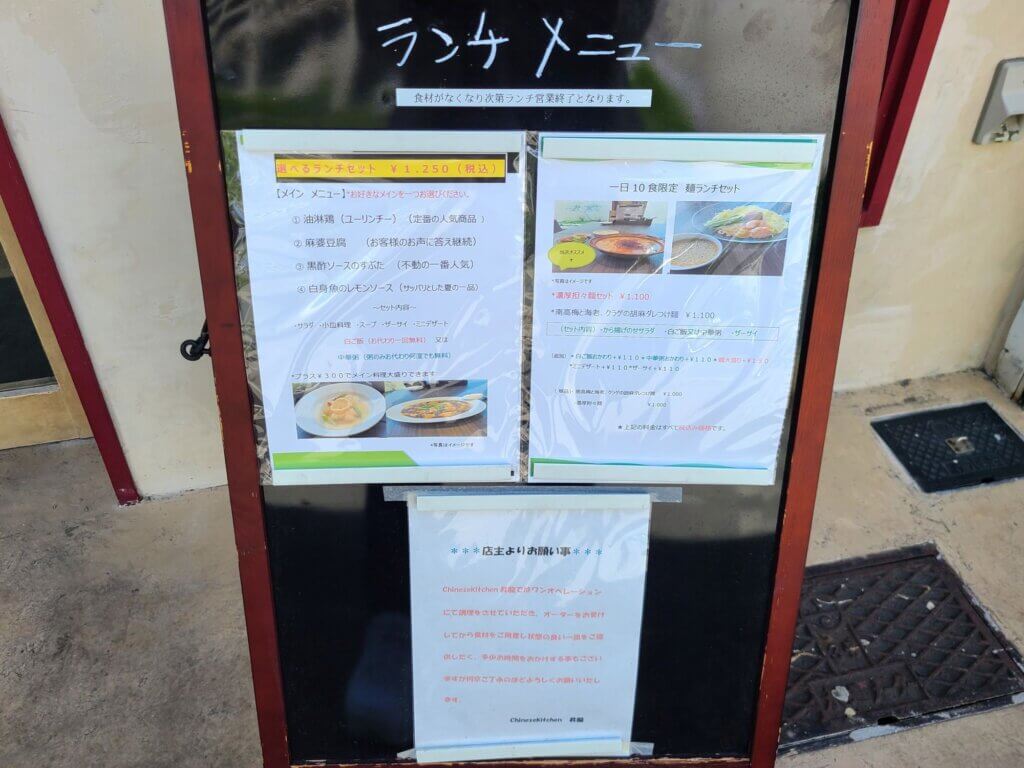 ランチ メニュー
食材がなくなり次第ランチ営業終了となります。
選べるランチセット ￥1,250（税込）
【メイン メニュー】*お好きなメインを一つお選びください。
① 油淋鶏（ユーリンチー）（定番の人気商品 ）
② 麻婆豆腐 （お客様のお声に答え継続）
③ 黒酢ソースのすぶた （不動の一番人気）
④ 白身魚のレモンソース（サッパリとした夏の一品）
～セット内容～
・サラダ ・小皿料理 ・スープ ・ザーサイ ・ミニデザート
白ご飯（お代わり一回無料） 又は
中華粥（粥のみお代わり何度でも無料）
*プラス￥３００でメイン料理大盛りできます
*写真はイメージです
一日 10 食限定 麺ランチセット
*写真はイメージです
*濃厚担々麺セット ￥1,100
*南高梅と海老、クラゲの胡麻ダレつけ麺 ￥1,100
（セット内容）・から揚げのせサラダ ・白ご飯又は中華粥 ・ザーサイ
（追加）*白ご飯おかわり+￥110*中華粥おかわり+￥110*麺大盛り+￥150
*ミニデザート+￥110*ザーサイ+￥110
（単品）・南高梅と海老、クラゲの胡麻ダレつけ麺 ￥1,000
・濃厚担々麺 ￥1,000
★上記の料金はすべて税込み価格です。
＊＊＊店主よりお願い事＊＊＊
ChineseKitchen 昇龍ではワンオペレーション
にて調理をさせていただき、オーダーをお受け
してから食材をご用意し状態の良い一皿をご提
供したく、多少お時間をおかけする事もござい
ますが何卒ご了承のほどよろしくお願いいたし
ます。
ChineseKitchen 昇龍